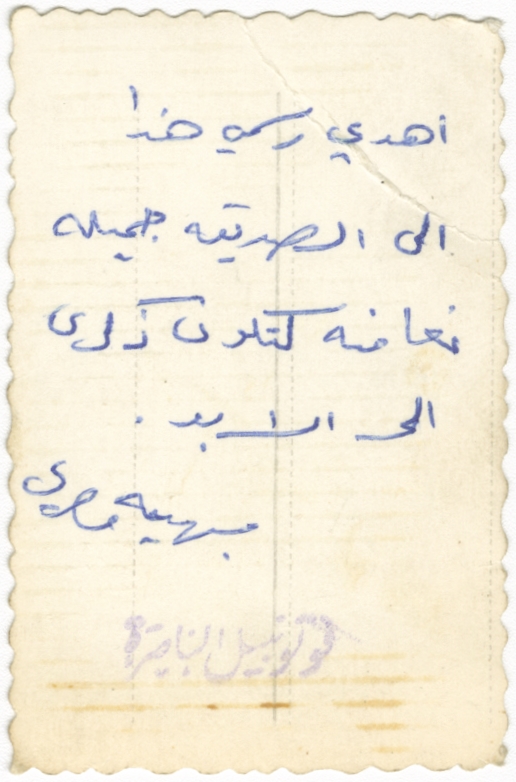 اهدي رسمي هذا
الى الصديقه جميله
لتكون ذكرى
الى الابد .
بهيه مصري
فوتو نبيل الناصرة